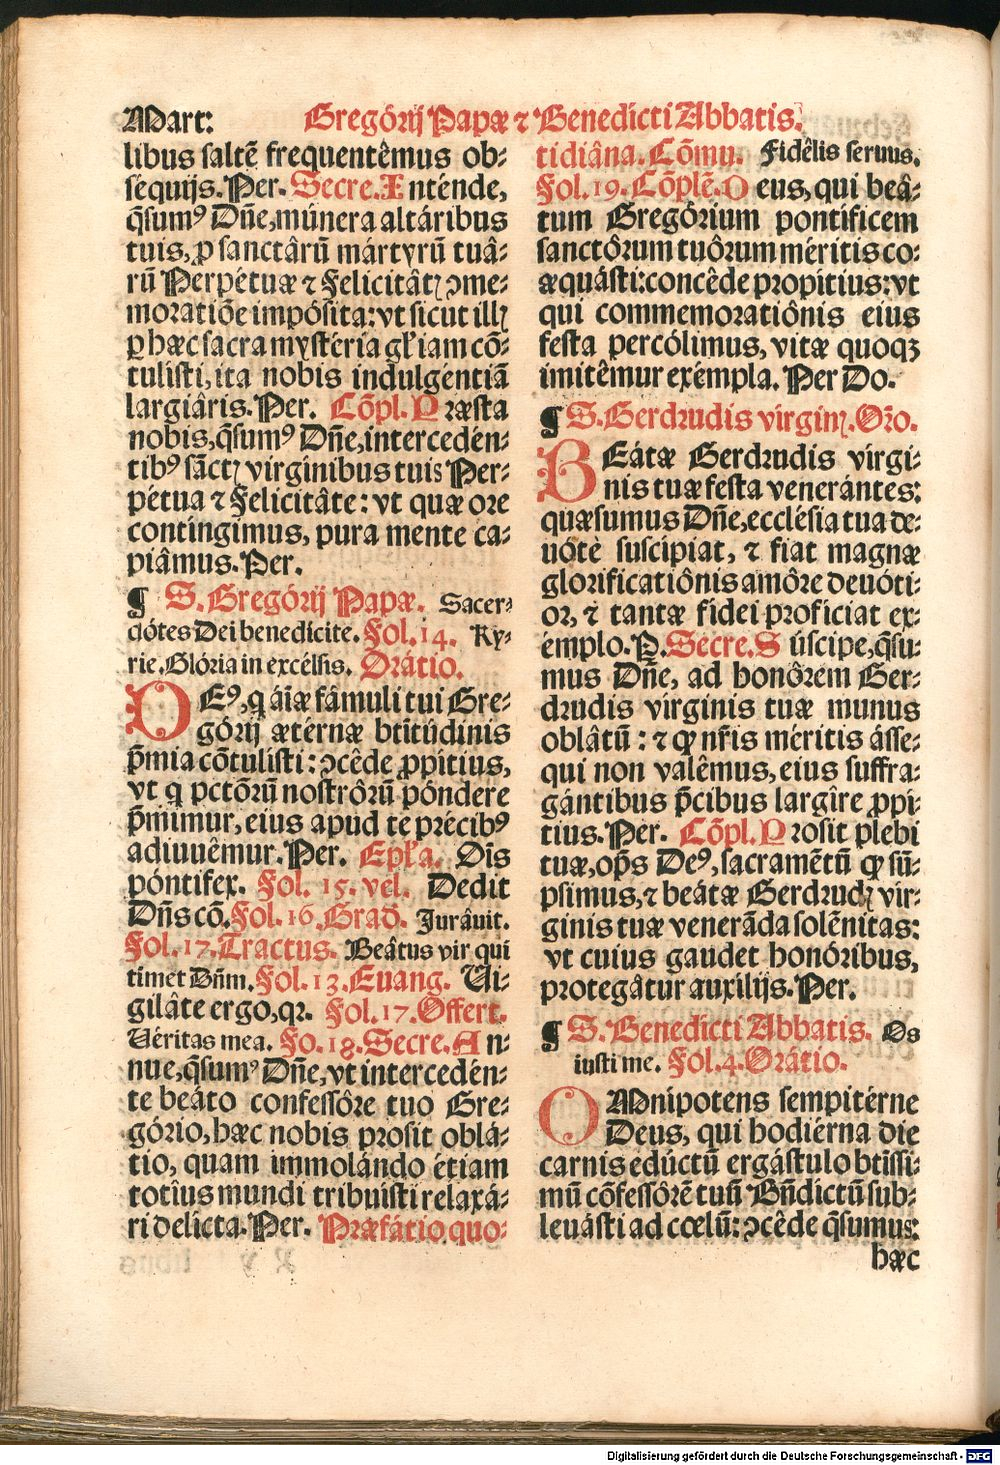 Mart: Gregórij Papæ ⁊ Benedicti Abbatis.
libus saltē frequentêmus ob⸗
séquijs. Per. Secre. Inténde,
q̃sumꝰ Dñe, múnera altáribus
tuis, ꝓ sanctârũ mártyrũ tuâ⸗
rũ Perpétuæ ⁊ Felicitâtꝭ ↄme⸗
moratiõe impósita: vt sicut illꝭ
ꝑ hæc sacra mystéria gl'iam cõ⸗
tulisti, ita nobis indulgentiã
largiâris. Per. Cõpl. Præsta
nobis, q̃sumꝰ Dñe, intercedén⸗
tibꝰ sãctꝭ virginibus tuis Per⸗
pétua ⁊ Felicitâte: vt quæ ore
contingimus, pura mente ca⸗
piâmus. Per.
¶ S. Gregórij Papæ. Sacer⸗
dótes Dei benedícite. Fol. 14. Ky⸗
rie. Glória in excélsis. Orátio.
DEꝰ, q aĩæ fámuli tui Gre⸗
górij ætérnæ bt̃itúdinis
p̃mia cõtulisti: ↄcêde ꝓpitius,
vt q pctõrũ nostrôrũ póndere
p̃mimur, eius apud te précibꝰ
adiuuêmur. Per. Epl'a. Oĩs
póntifex. Fol. 15. vel. Dedit
Dñs cõ. Fol. 16. Grad. Jurâuit.
Fol. 17. Tractus. Beâtus vir qui
timet Dñm. Fol. 13. Euang. Vi⸗
gilâte ergo, qr. Fol. 17. Offert.
Véritas mea. Fo. 18. Secre. An⸗
nue, q̃sumꝰ Dñe, vt intercedén⸗
te beáto confessôre tuo Gre⸗
gório, hæc nobis prosit oblá⸗
tio, quam immolándo étiam
totîus mundi tribuisti relaxá⸗
ri delicta. Per. Præfátio quo⸗
tidiâna. Cõmu. Fidêlis seruus.
Fol. 19. Cõplẽ. Deus, qui beâ⸗
tum Gregórium pontíficem
sanctôrum tuôrum méritis co⸗
æquásti: concêde propitius: vt
qui commemoratiônis eius
festa percólimus, vitæ quoqꝫ
imitêmur exémpla. Per Do.
¶ S. Gerdrudis virginꝭ. Oro.
BEátæ Gerdrudis virgi⸗
nis tuæ festa venerántes:
quæsumus Dñe, ecclésia tua de⸗
uótè suscípiat, ⁊ fiat magnæ
glorificatiônis amôre deuóti⸗
or, ⁊ tantæ fídei profíciat ex⸗
émplo. P. Secre. Súscipe, q̃su⸗
mus Dñe, ad honôrem Ger⸗
drudis vírginis tuæ munus
oblâtũ: ⁊ qp nr̃is méritis ásse⸗
qui non valêmus, eius suffra⸗
gántibus p̃cibus largîre ꝓpi⸗
tius. Per. Cõpl. Prosit plebi
tuæ, op̃s Deꝰ, sacramẽtũ qp sũ⸗
psimus, ⁊ beátæ Gerdrudꝭ vir⸗
ginis tuæ venerãda solẽnitas:
vt cuius gaudet honóribus,
protegâtur auxilijs. Per.
¶ S. Benedicti Abbatis. Os
iusti me. Fol. 4. Orátio.
OMnipotens sempitérne
Deus, qui hodiérna die
carnis edúctũ ergástulo bt̃issi⸗
mũ cõfessôrẽ tuũ Bñdictũ sub⸗
leuásti ad cœlũ: ↄcêde q̃sumus:
hæc
Digitalisierung gefördert durch die Deutsche Forschungsgemeinschaft - DFG